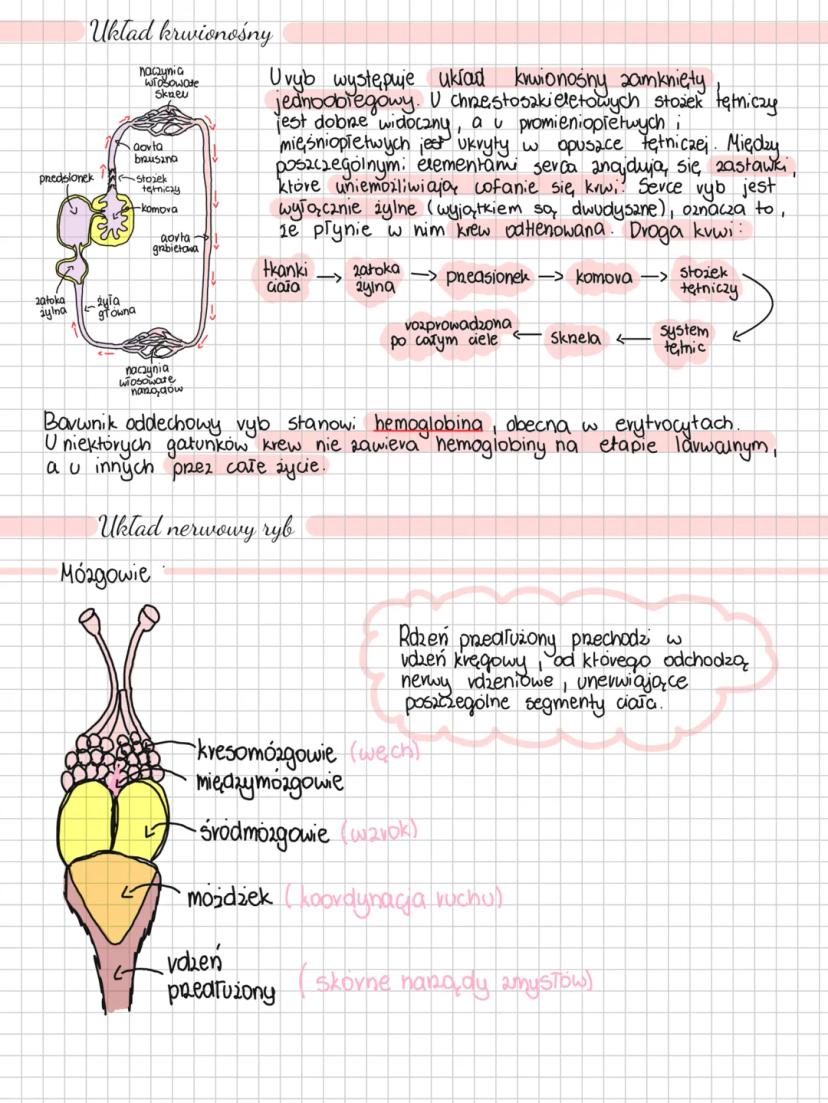 Układ krwionośny
naczynia
włosowate
skrzeli
aorta
brzuszna
przedsionek
stożek
tętniczy
komora
aorta
grzbietowa
zatoka
żylna
żyła
główna
naczynia
włosowate
narządów
U ryb występuje układ krwionośny zamknięty,
jednoobiegowy. U chrzęstoszkieletowych stożek tętniczy
jest dobrze widoczny, a u promieniopłetwych i
mięśniopłetwych jest ukryty w opuszce tętniczej. Między
poszczególnymi elementami serca znajdują się zastawki,
które uniemożliwiają cofanie się krwi. Serce ryb jest
wyłącznie żylne (wyjątkiem są dwudyszne), oznacza to,
że płynie w nim krew odtlenowana. Droga krwi:
tkanki
ciała → zatoka
żylna → przedsionek → komora → stożek
tętniczy
rozprowadzona
po całym ciele ← skrzela ← system
tętnic
Barwnik oddechowy ryb stanowi hemoglobina, obecna w erytrocytach.
U niektórych gatunków krew nie zawiera hemoglobiny na etapie larwalnym,
a u innych przez całe życie.
Układ nerwowy ryb
Mózgowie
Rdzeń przedłużony przechodzi w
rdzeń kręgowy, od którego odchodzą
nerwy rdzeniowe, unerwiające
poszczególne segmenty ciała.
kresomózgowie (węch)
międzymózgowie
śródmózgowie (wzrok)
móżdżek (koordynacja ruchu)
rdzeń
przedłużony (skórne narządy zmysłów)